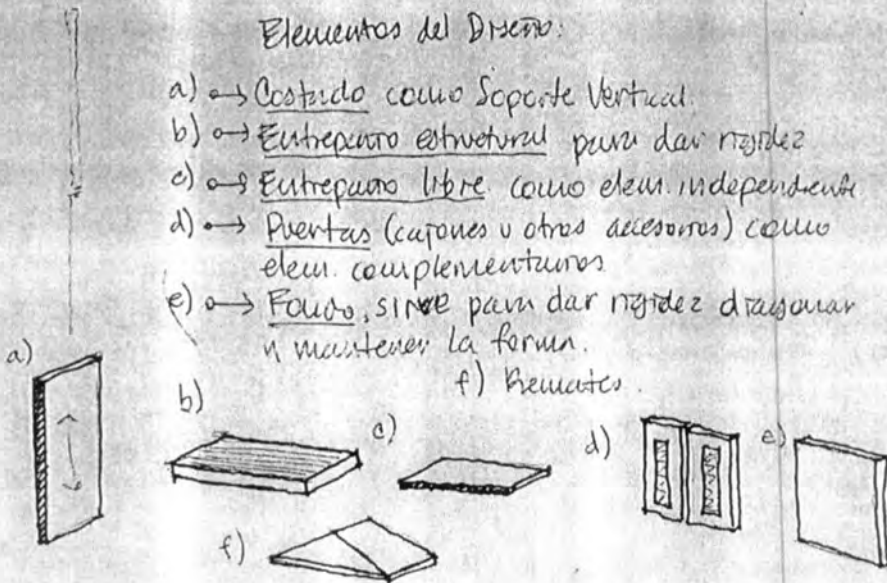 Elementos del Diseño:
a) → Costado como Soporte Vertical.
b) → Entrepaño estructural para dar rigidez
c) → Entrepaño libre como elem. independiente
d) → Puertas (cajones u otros accesorios) como
elem. complementarios
e) → Fondo, sirve para dar rigidez diagonal
y mantener la forma.
f) Remates.
a)
b)
c)
d)
e)
f)